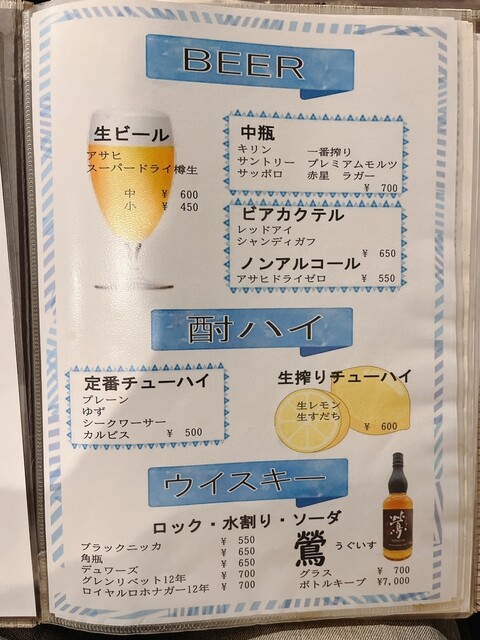 BEER
生ビール
アサヒ
スーパードライ樽生
中 ¥ 600
小 ¥ 450
中瓶
キリン 一番搾り
サントリー プレミアムモルツ
サッポロ 赤星 ラガー
¥ 700
ビアカクテル
レッドアイ
シャンディガフ
¥ 650
ノンアルコール
アサヒドライゼロ ¥ 550
酎ハイ
定番チューハイ
プレーン
ゆず
シークワーサー
カルピス ¥ 500
生搾りチューハイ
生レモン
生すだち
¥ 600
ウイスキー
ロック・水割り・ソーダ
ブラックニッカ ¥ 550
角瓶 ¥ 650
デュワーズ ¥ 650
グレンリベット12年 ¥ 700
ロイヤルロホナガー12年 ¥ 700
鶯 うぐいす
グラス ¥ 700
ボトルキープ ¥7,000
鶯